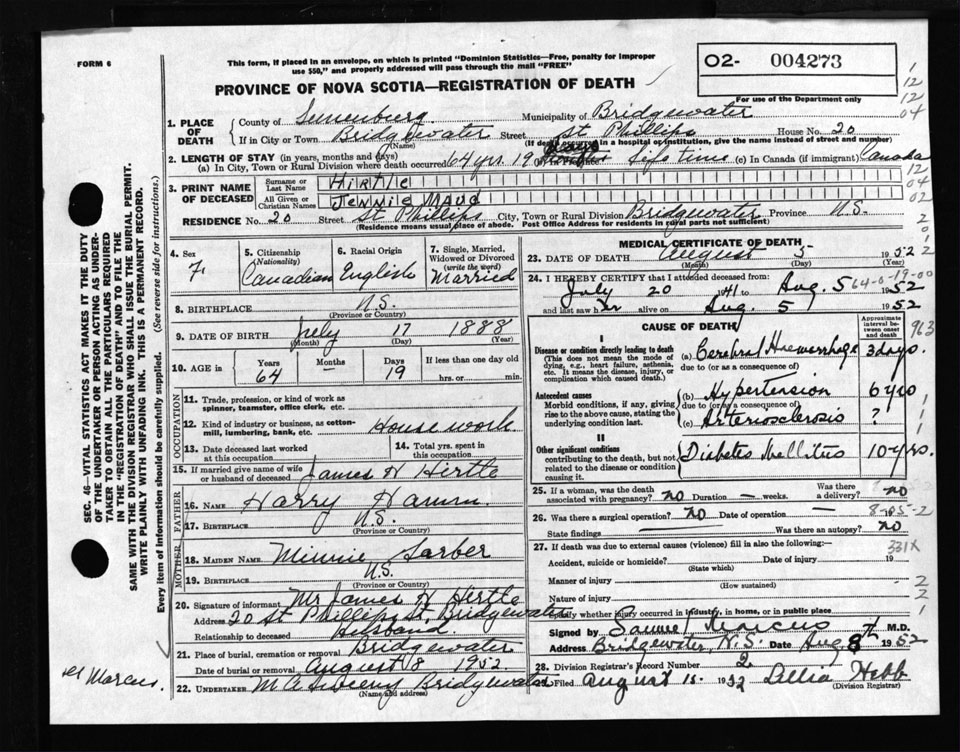 FORM 6
This form, if placed in an envelope, on which is printed "Dominion Statistics—Free, penalty for improper
use $50," and properly addressed will pass through the mail "FREE"
O2- 004273
For use of the Department only
PROVINCE OF NOVA SCOTIA—REGISTRATION OF DEATH
1. PLACE OF DEATH
County of Lunenburg Municipality of Bridgewater
If in City or Town Bridgewater Street St Phillips House No. 20
(Name) (If death occurred in a hospital or institution, give the name instead of street and number)
2. LENGTH OF STAY (in years, months and days)
(a) In City, Town or Rural Division where death occurred 64 yrs 19 days life time (c) In Canada (if immigrant) Canada
3. PRINT NAME OF DECEASED
Surname or Last Name Hirtle
All Given or Christian Names Jennie Maud
RESIDENCE No. 20 Street St Phillips City, Town or Rural Division Bridgewater Province N.S.
(Residence means usual place of abode. Post Office Address for residents in rural parts not sufficient)
4. Sex F.
5. Citizenship (Nationality) Canadian
6. Racial Origin English
7. Single, Married, Widowed or Divorced (write the word) Married
8. BIRTHPLACE N.S.
(Province or Country)
9. DATE OF BIRTH July 17 1888
(Month) (Day) (Year)
10. AGE in Years 64 Months — Days 19 If less than one day old hrs. or min.
OCCUPATION
11. Trade, profession, or kind of work as spinner, teamster, office clerk, etc.
12. Kind of industry or business, as cotton-mill, lumbering, bank, etc. Housework
13. Date deceased last worked at this occupation
14. Total yrs. spent in this occupation
15. If married give name of wife or husband of deceased James H Hirtle
FATHER
16. NAME Harry Hamm
17. BIRTHPLACE N.S.
(Province or Country)
MOTHER
18. MAIDEN NAME Minnie
19. BIRTHPLACE N.S.
(Province or Country)
20. Signature of informant Mr James H Hirtle
Address 20 St Phillips St, Bridgewater
Relationship to deceased Husband
21. Place of burial, cremation or removal Bridgewater
Date of burial or removal August 8 1952.
22. UNDERTAKER Bridgewater
(Name and address)
MEDICAL CERTIFICATE OF DEATH
23. DATE OF DEATH August 5 1952
(Month) (Day) (Year)
24. I HEREBY CERTIFY that I attended deceased from:
July 20 1941 to Aug. 5 1952
and last saw her alive on Aug. 5 1952
CAUSE OF DEATH
Approximate interval between onset and death
I
Disease or condition directly leading to death
(This does not mean the mode of dying, e.g., heart failure, asthenia, etc. It means the disease, injury, or complication which caused death.)
(a) Cerebral Haemorrhage 3 days.
due to (or as a consequence of)
Antecedent causes
Morbid conditions, if any, giving rise to the above cause, stating the underlying condition last.
(b) Hypertension 6 yrs
due to (or as a consequence of)
(c) Arteriosclerosis ?
II
Other significant conditions contributing to the death, but not related to the disease or condition causing it.
Diabetes Mellitus 10 yrs.
25. If a woman, was the death associated with pregnancy? no Duration — weeks. Was there a delivery? no
26. Was there a surgical operation? no Date of operation —
State findings Was there an autopsy? no
27. If death was due to external causes (violence) fill in also the following:—
Accident, suicide or homicide? Date of injury 19
(State which)
Manner of injury
(How sustained)
Nature of injury
Specify whether injury occurred in industry, in home, or in public place
Signed by Samuel Marcus M.D.
Address Bridgewater, N.S. Date Aug. 8 1952
28. Division Registrar's Record Number
29. Filed August 15 1952 Hebb
(Division Registrar)
SEC. 46—VITAL STATISTICS ACT MAKES IT THE DUTY
OF THE UNDERTAKER OR PERSON ACTING AS UNDER-
TAKER TO OBTAIN ALL THE PARTICULARS REQUIRED
IN THE "REGISTRATION OF DEATH" AND TO FILE THE
SAME WITH THE DIVISION REGISTRAR WHO SHALL ISSUE THE BURIAL PERMIT.
WRITE PLAINLY WITH UNFADING INK. THIS IS A PERMANENT RECORD.
Every item of information should be carefully supplied. (See reverse side for instructions.)
Marcus.
1
12
12
04
12
04
02
963
331X